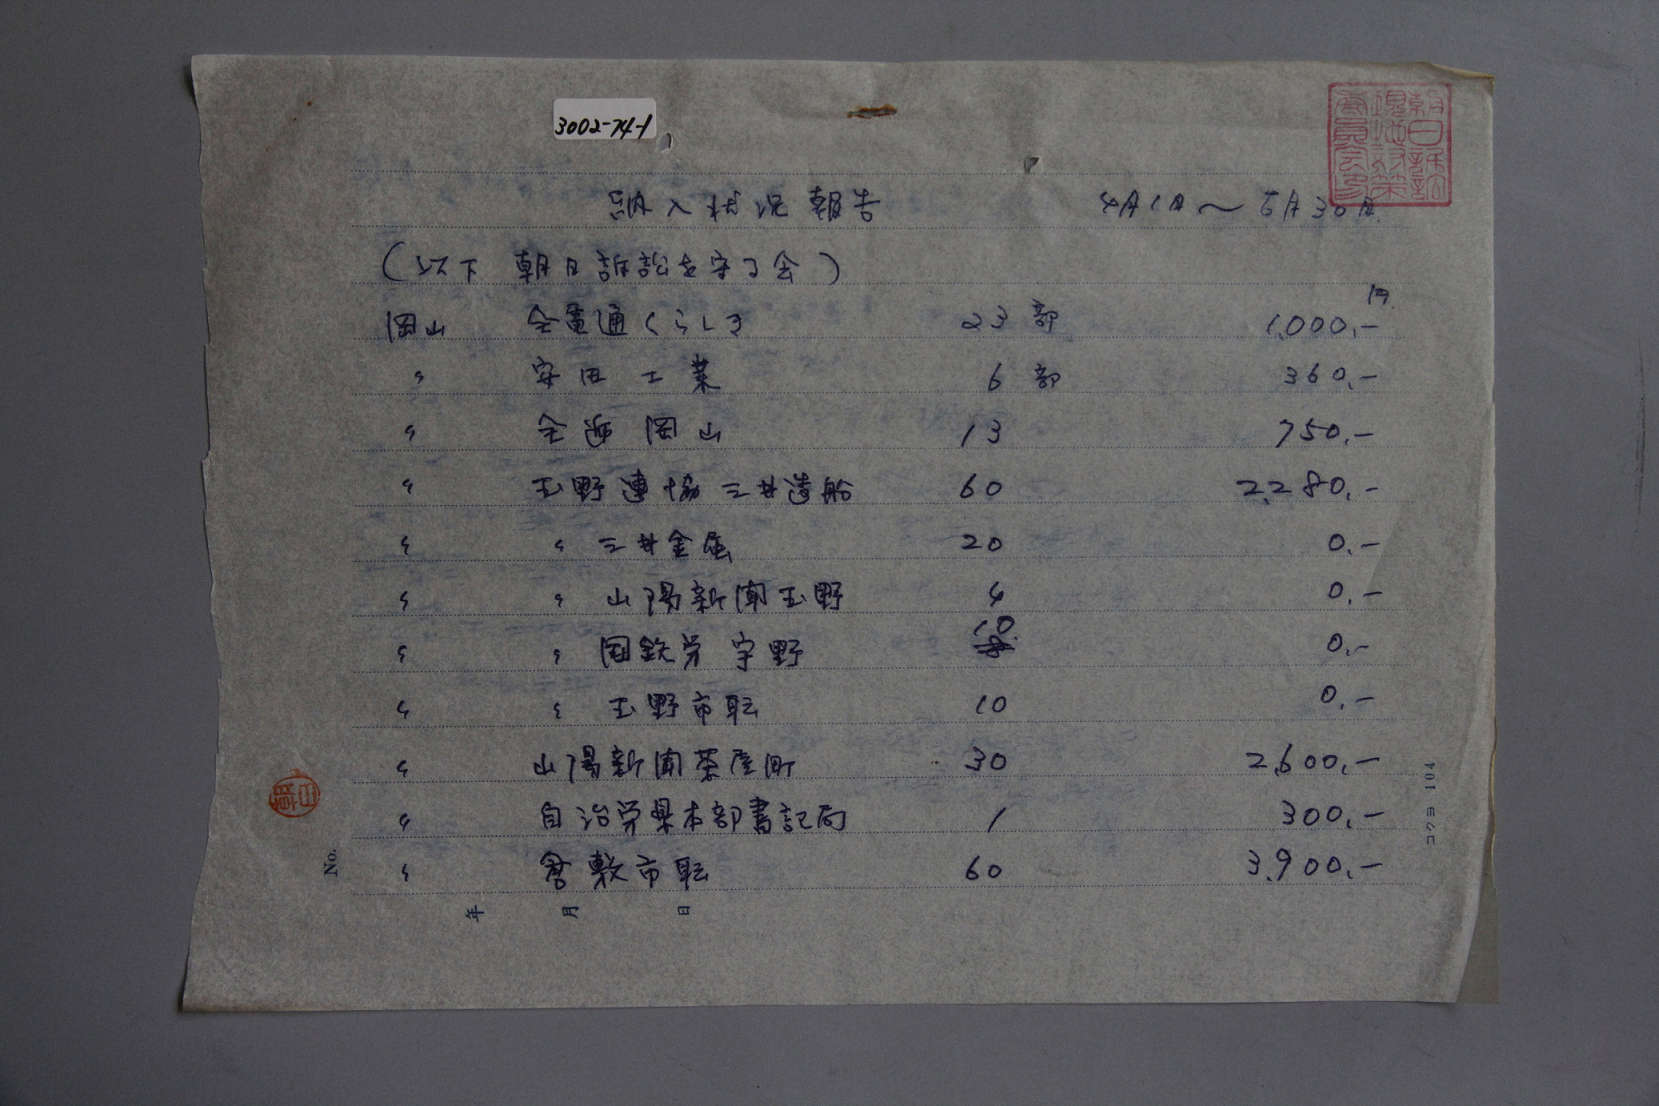 3002-74-1
納入状況報告 4月1日〜5月30日
(以下 朝日訴訟を守る会)
円
岡山 全電通くらしき 23部 1,000.-
〃 安田工業 6部 360.-
〃 全逓岡山 13 750.-
〃 玉野連協三井造船 60 2,280.-
〃 〃 三井金属 20 0.-
〃 〃 山陽新聞玉野 4 0.-
〃 〃 国鉄労宇野 10 0.-
〃 〃 玉野市職 10 0.-
〃 山陽新聞茶屋町 30 2,600.-
〃 自治労県本部書記局 1 300.-
〃 倉敷市職 60 3,900.-
年 月 日
No.
コクヨ 104